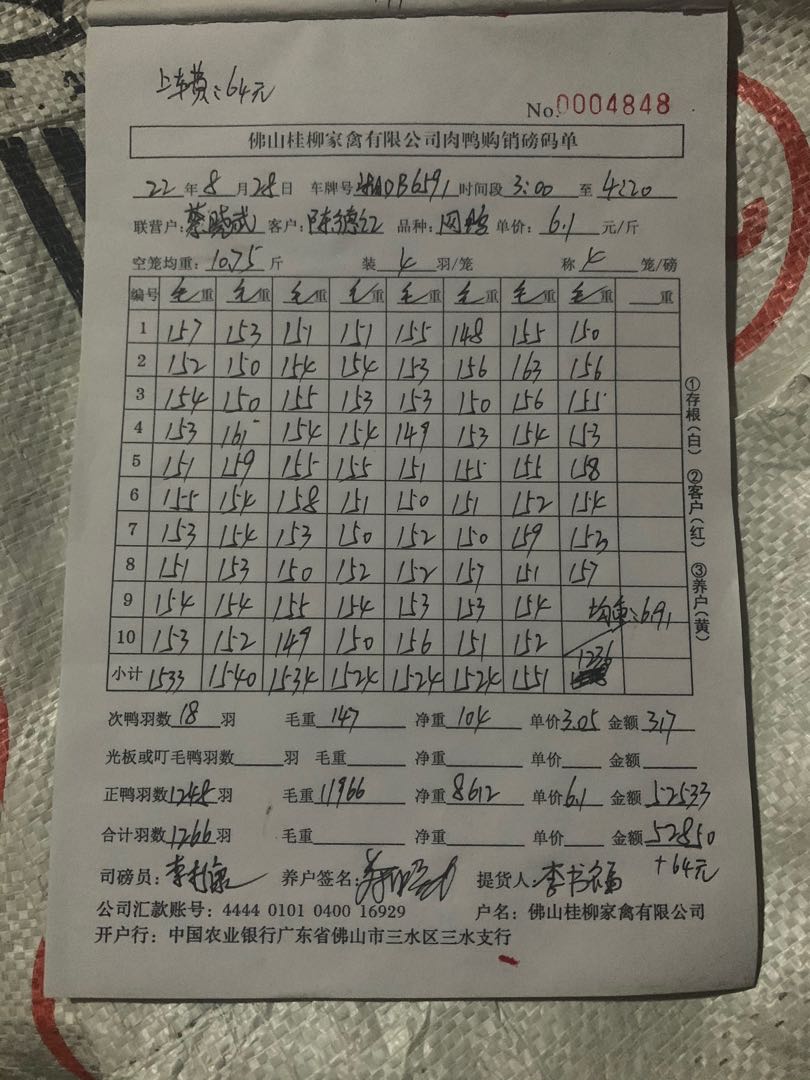 上车费：64元
No.0004848
佛山桂柳家禽有限公司肉鸭购销磅码单
22年8月28日 车牌号湘AOB6591时间段3:00至4:20
联营户：蔡晓武 客户：陈德红 品种：网鸭 单价：6.1元/斤
空笼均重：10.75斤 装4羽/笼 称4笼/磅
编号 毛重 毛重 毛重 毛重 毛重 毛重 毛重 毛重 重
1 157 153 151 151 155 148 155 150
2 152 150 154 154 153 156 163 156
3 154 150 155 153 153 150 156 155
4 153 161 154 154 149 153 154 153
5 151 159 155 155 151 155 155 158
6 155 154 158 151 150 151 152 154
7 153 154 153 150 152 150 159 153
8 151 153 150 152 152 157 151 157
9 154 154 155 154 153 153 154 均重：6.91
10 153 152 149 150 156 151 152
小计 1533 1540 1534 1524 1524 1524 1551 1236
①存根（白） ②客户（红） ③养户（黄）
次鸭羽数18羽 毛重147 净重104 单价3.05 金额317
光板或叮毛鸭羽数 羽 毛重 净重 单价 金额
正鸭羽数1248羽 毛重11966 净重8612 单价6.1 金额52533
合计羽数1266羽 毛重 净重 单价 金额52850
+64元
司磅员：李 养户签名： 提货人：李书福
公司汇款账号：4444 0101 0400 16929 户名：佛山桂柳家禽有限公司
开户行：中国农业银行广东省佛山市三水区三水支行